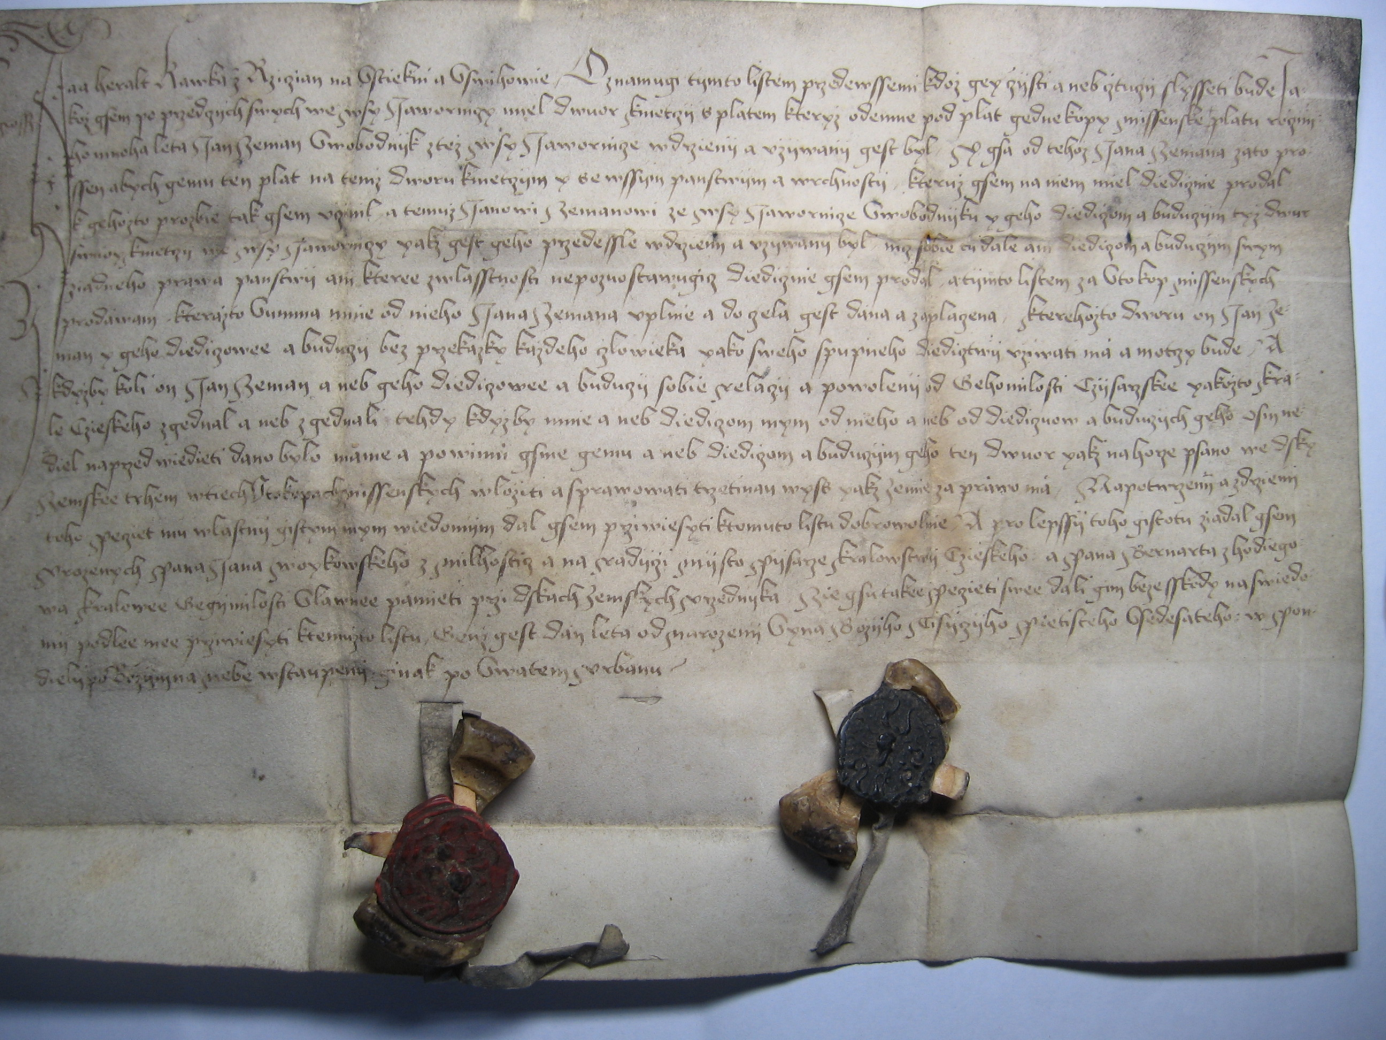 Jaa heralt Kawka z Rziczan na Sstiekni a Sswihowie Oznamugi tiymto listem przedewssemi kdoz gey czysti a neb cztuczy slysseti bude Ja-
koz gsem po przedczych swych we wsy Jaworniczy miel dwuor kmetczy s platem kteryz odemne pod plat gedne kopy missenske platu rocznie
ho mnoha leta Jan Zeman Swobodnijk z tez wsy Jawornicze w drzieni a vzywani gest byl y gsa od tehoz Jana Zemana za to pro-
ssen abych gemu ten plat na temz dworu kmetczym y se wssijm panstwijm a wrchnosti kteruz gsem na niem miel diedicznie prodal
k gehozto prozbie tak gsem vczinil a temuz Janowi Zemanowi ze wsy Jawornicze Swobodnijku y geho diediczom a buduczym tyz dwur
swuoy kmetczy we wsy Jaworniczy yakz gest geho przedessle w drzieni a vzywani byl nicz sobie cti dale ani diediczom a buduczym swym
ziadneho prawa panstwij ani kteree zwlasstnosti nepozuostawugicz diedicznie gsem prodal a tijmto listem za Sto kop missenskych
prodawam kterazto Summa mnie od nieho Jana Zemana vplnie a do czela gest dana a zaplaczena kterehozto dworu on Jan Ze-
man y geho diediczowee a buduczij bez przekazky kazdeho czlowieka yako sweho spupneho diedicztwij vziwati ma a moczy bude A
kdyzby koli on Jan Zeman a neb geho diediczowee a buduczij sobie relaczij a powolenij od Gehomilosti Czysarzskee yakozto kra-
le Czieskeho zgednal a neb zgednali tehdy kdyzby mnie a neb diediczom mym od nieho a neb od diediczuow a buduczych geho osm ne-
diel naprzed wiedieti dano bylo mame a powinni gsme gemu a neb diediczom a buduczym geho ten dwuor yakz nahorze psano we dsky
Zemskee trhem w tiech Stokopach missenskych wloziti a sprawowati trzetinau wyss yakz zemie za prawo ma Na potwrzenij a zdrzenij
toho peczet mu wlastnij gistym mym wiedomijm dal gsem prziwiesyti k tomuto listu dobrowolnie A pro lepssij toho gistotu ziadal gsem
vrozenych pana Jana z milhosticz a na radiczi mijsto pijsarze kralowstwij Czieskeho a pana Bernarta z hodiego-
wa kralowee Gegymilosti Slawnee pamieti przi dskach Zemskych vrzednijka Zie gsu takee peczeti swee dali gim bezesskody na swiedo-
mij podlee mee prziwiesyti k temuzto listu Genz gest dan leta od narozenij Syna Bozijho Tisyczijho pietisteho Ssedesateho w pon-
dielij po Bozijm na nebe wstaupenij ginak po Swatem vrbanu